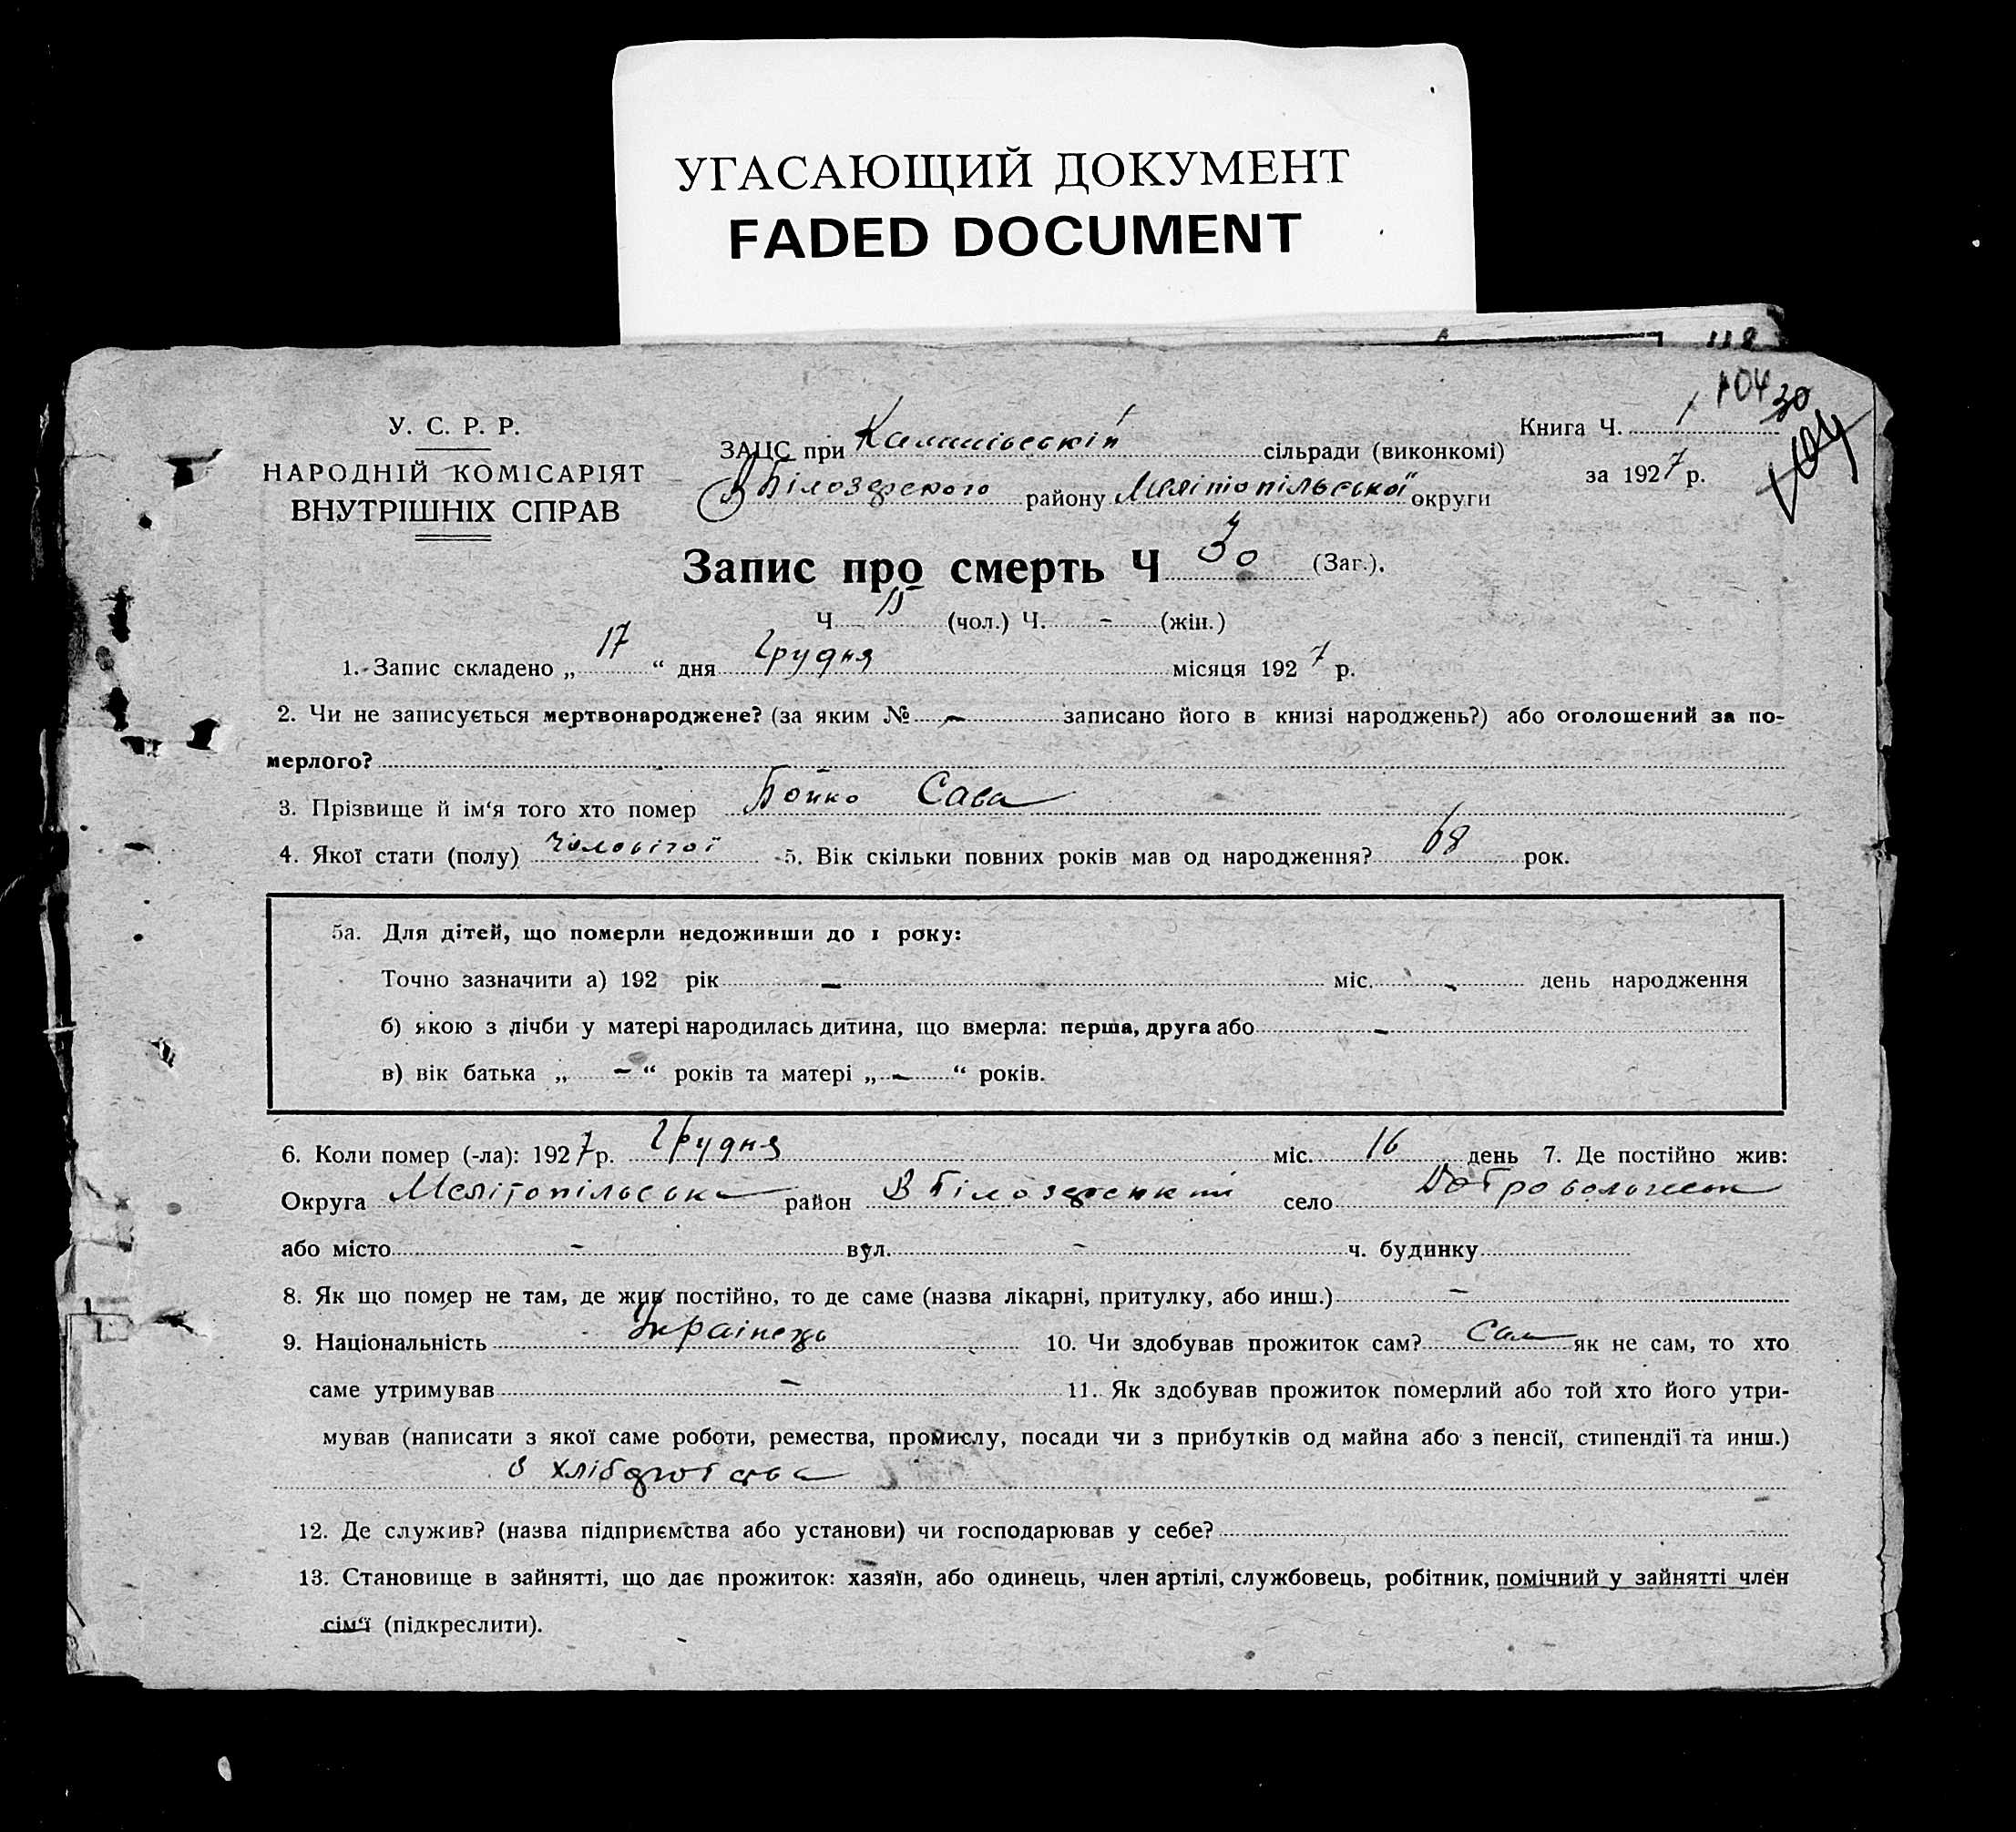 УГАСАЮЩИЙ ДОКУМЕНТ
FADED DOCUMENT
118
104 30
104
У. С. Р. Р.
НАРОДНІЙ КОМІСАРІЯТ
ВНУТРІШНІХ СПРАВ
ЗАЦС при сільради (виконкомі)
В Білозерского району Мелітопільської округи
Книга Ч. 1
за 1927 р.
Запис про смерть Ч 30 (Заг.).
Ч 15 (чол.) Ч. - (жін.)
1. Запис складено „ 17 “ дня Грудня місяця 1927 р.
2. Чи не записується мертвонароджене? (за яким № - записано його в книзі народжень?) або оголошений за по-
мерлого?
3. Прізвище й ім‘я того хто помер Бойко Сава
4. Якої стати (полу) чоловічої 5. Вік скільки повних років мав од народження? 68 рок.
5а. Для дітей, що померли недоживши до 1 року:
Точно зазначити а) 192 рік - міс. - день народження
б) якою з лічби у матері народилась дитина, що вмерла: перша, друга або -
в) вік батька „ - “ років та матері „ - “ років.
6. Коли помер (-ла): 1927 р. Грудня міс. 16 день 7. Де постійно жив:
Округа Мелітопільська район В Білозерський село
або місто - вул. - ч. будинку
8. Як що помер не там, де жив постійно, то де саме (назва лікарні, притулку, або инш.) -
9. Національність Українець 10. Чи здобував прожиток сам? Сам як не сам, то хто
саме утримував - 11. Як здобував прожиток померлий або той хто його утри-
мував (написати з якої саме роботи, ремества, промислу, посади чи з прибутків од майна або з пенсії, стипендії та инш.)
з хліборобства
12. Де служив? (назва підприємства або установи) чи господарював у себе?
13. Становище в зайнятті, що дає прожиток: хазяїн, або одинець, член артілі, службовець, робітник, помічний у зайнятті член
сім‘ї (підкреслити).